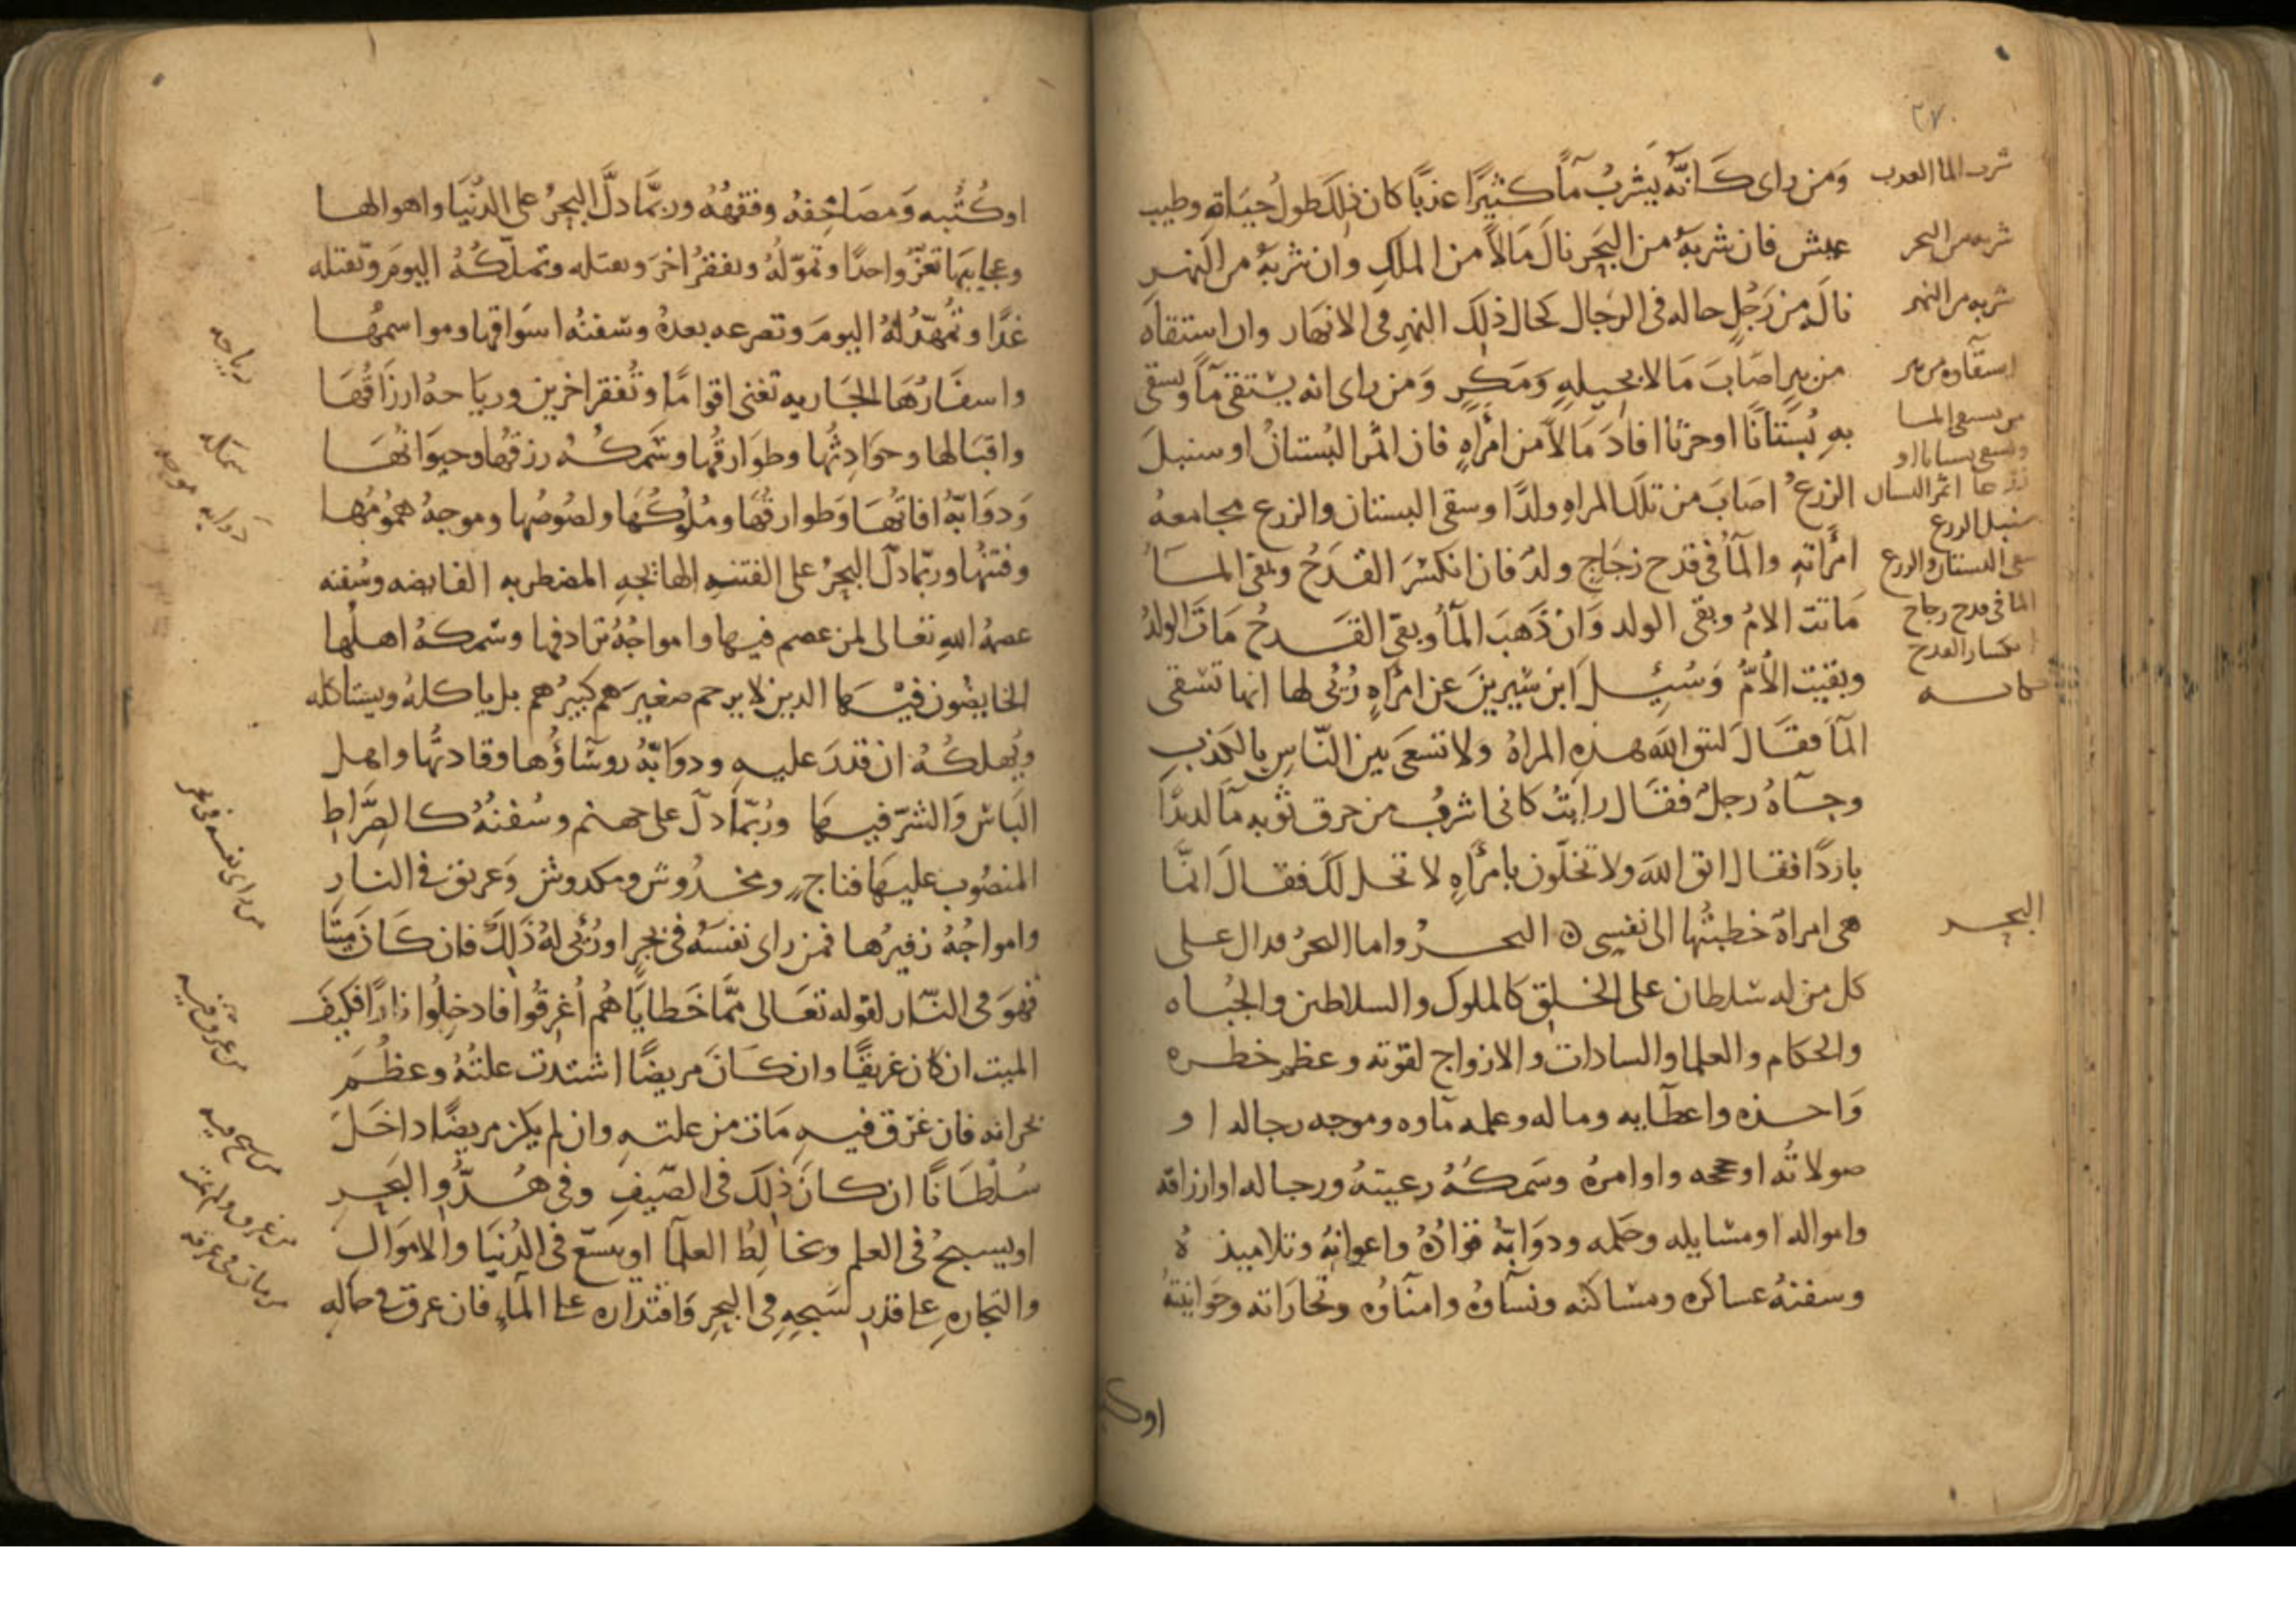 ٢٧٠
ومن راى كَانّه يَشربُ مآءً كثيرًا عذبًا كان ذلكَ طولُ حيَاةٍ وطيب
عيش فان شربَهُ من البَحرِ نالَ مَالاً من الملكِ وان شربَهُ من النهر
نالَه من رَجُلٍ حاله فى الرجال كحال ذلِكَ النهرِ فى الانهَار وان استقاه
من بيرٍ اصَابَ مَالا بحيلةٍ وَمَكرٍ وَمن راى انه يستقى مآءً ويسقى
بهِ بُستَانًا او حرثًا افادَ مَالاً من امرأهٍ فان اثمر البُستانُ او سنبلَ
الزرعُ اصَابَ من تلكَ المراهِ ولدًا وسقى البستان والزرع مجامعهُ
امرأتهِ والمآءُ فى قدح زجَاجٍ ولدٌ فان انكسَرَ القَدَحُ وبقى المَاءُ
مَاتت الامُ وبقى الولد وَان ذَهَبَ المآءُ وبقىَ القَدحُ مَاتَ الولدُ
وبقيت الأمُّ وَسُئِلَ ابن سيرينَ عن امرأهٍ رُئى لها انها تسقى
المآءَ فقَالَ لتتق اللّه هذهِ المراهُ ولا تسعَى بين النّاسِ بالكذب
وجآهُ رجلٌ فقَال رايتُ كانى اشربُ من خرق ثوبه مآءً لذيذًا
باردًا فقال اتق اللهَ ولا تخلُوَن بامرأهٍ لا تحل لكَ فقالَ انمَا
هى امراةٌ خطبتُها الى نفسِى ه البحرُ واما البحرُ فدال على
كل من له سلطان على الخلق كالملوك والسلاطين والجُباه
والحكام والعلما والسادات والازواج لقوّته وعظم خطره
وَاخذه واعطآيه وماله وعلمه مآوه وموجه رجاله او
صولاتُه او حججه واوامرهُ وسَمكُهُ رعيتهُ ورجاله او ارزاقه
وامواله او مسايله وحكمه ودوَابّهُ قوادُهُ واعوانهُ وتلاميذهُ
وسفنهُ عساكره ومساكنه ونسآوهُ وامنآوه وتجارَاته وحَوانيتهُ
شرب الما العذب
شربه من البحر
شربه من النهر
استقاوه من بير
من يستقى الما
ويسقى بستانا او
اثمر البستان
سنبل الزرع
سقى البستان والزرع
الما فى قدح زجاج
انكسار القدح
البحر
اوكتبه
اوكُتُبه وَمصَاحفهُ وفقهُهُ وربمَّا دلَّ البحرُ على الدُّنيَا واهوالها
وعجايبهَا تعزّ واحدًا وتموّلهُ وتفقرُ اخرَ وتقتله وتملّكُهُ اليومَ وتقتله
غدًا وتُمهّدُ لهُ اليومَ وتصرعه بعدهُ وسفنهُ اسوَاقها ومواسمهُا
واسفَارُهَا الجَاريه تغنى اقوامًا وتُفقر اخرين وريَاحهُ ارزَاقُهَا
واقبَالها وحوَادِثُها وطوَارقُها وسَمكُهُ رزقُها وحيوَانُهَا
وَدوَابّهُ افاتُهَا وَطوارقُهَا ومُلُوكُهَا ولصُوصُها وموجهُ همُومُها
وفتنهُا وربّما دلّ البحرُ على الفتنهِ الهائجهِ المضطربه الفايضه وسُفنه
عصمهُ اللهِ تعالى لمن عصم فيها وامواجُهُ ترادفها وسَمكهُ اهلُها
الخايضُون فيْهَا الذين لا يرحم صغيرَهم كبيرُهم بل ياكلهُ ويستاكله
ويُهلكُهُ ان قدرَ عليهِ ودوَابّهُ رؤسَاؤُها وقادتهُا واهل
البَاسِ وَالشرّ فيهَا ورُبّما دلّ على جهنم وسُفنُهُ كالصِّراطِ
المنصُوب عليهَا فناجٍ ومخدُوش ومكدوش وَغريق فى النارِ
وامواجُهُ زفيرُها فمن راى نفسَهُ فى بحرٍ او رُئى لهُ ذَلِكَ فان كَانَ ميّتًا
فهوَ فى النّار لقوله تعَالى ممَّا خَطايَاهُم أُغرِقُوا فادخِلُوا نارًا فكيفَ
الميت ان كان غريقًا وان كَانَ مريضًا اشتدت علتُهُ وعظُمَ
بحرانه فان غرق فيهِ مَات من علتهِ وان لم يكن مريضًا داخَلَ
سُلطَانًا ان كانَ ذلكَ فى الصّيفِ وفى هُدُّوِ البَحرِ
او يسبحُ فى العلم ويخَالِطُ العلمآء او يتسّع فى الدُنيَا والاموَالِ
والتجارهِ على قدرِ سَبحِهِ فى البحرِ وَاقتدَاره على المآءِ فان غرق فى حاله
رياحه
سمكه
دوابه موجه
من راى نفسه فى بحر
من غرق فيه
من سبح فيه
من غرق ولم يمت
من مات فى غرقه